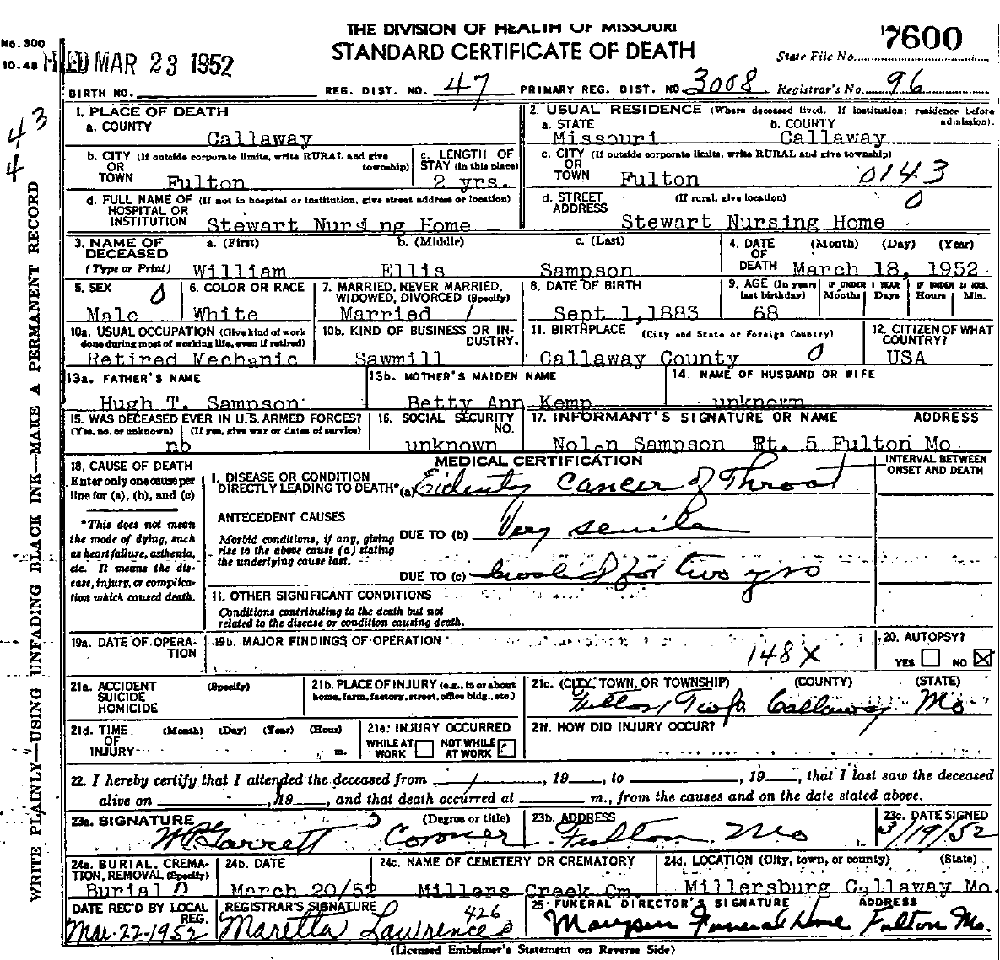 THE DIVISION OF HEALTH OF MISSOURI
STANDARD CERTIFICATE OF DEATH
State File No. 7600
No. 300
10-48
MAR 23 1952
BIRTH NO. REG. DIST. NO. 47 PRIMARY REG. DIST. NO 3008 Registrar's No. 96
43
4
WRITE PLAINLY—USING UNFADING BLACK INK—MAKE A PERMANENT RECORD
1. PLACE OF DEATH
a. COUNTY
Callaway
2. USUAL RESIDENCE (Where deceased lived. If institution: residence before admission).
a. STATE b. COUNTY
Missouri Callaway
b. CITY (If outside corporate limits, write RURAL and give township)
OR
TOWN Fulton
c. LENGTH OF
STAY (in this place)
2 yrs.
c. CITY (If outside corporate limits, write RURAL and give township)
OR
TOWN Fulton 0143
d. FULL NAME OF (If not in hospital or institution, give street address or location)
HOSPITAL OR
INSTITUTION Stewart Nursing Home
d. STREET (If rural, give location) 0
ADDRESS Stewart Nursing Home
3. NAME OF DECEASED a. (First) b. (Middle) c. (Last)
(Type or Print) William Ellis Sampson
4. DATE (Month) (Day) (Year)
OF
DEATH March 18, 1952
5. SEX 0
Male
6. COLOR OR RACE
White
7. MARRIED, NEVER MARRIED,
WIDOWED, DIVORCED (Specify)
Married /
8. DATE OF BIRTH
Sept 1,1883
9. AGE (In years last birthday) IF UNDER 1 YEAR Months Days IF UNDER 24 HRS. Hours Min.
68
10a. USUAL OCCUPATION (Give kind of work done during most of working life, even if retired)
Retired Mechanic
10b. KIND OF BUSINESS OR INDUSTRY.
Sawmill
11. BIRTHPLACE (City and State or Foreign Country)
Callaway County 0
12. CITIZEN OF WHAT COUNTRY?
USA
13a. FATHER'S NAME
Hugh T. Sampson
13b. MOTHER'S MAIDEN NAME
Betty Ann Kemp
14. NAME OF HUSBAND OR WIFE
unknown
15. WAS DECEASED EVER IN U.S. ARMED FORCES?
(Yes, no, or unknown) (If yes, give war or dates of service)
16. SOCIAL SECURITY NO.
unknown
17. INFORMANT'S SIGNATURE OR NAME ADDRESS
Nolan Sampson Rt. 5 Fulton Mo
18. CAUSE OF DEATH
Enter only one cause per
line for (a), (b), and (c)
*This does not mean
the mode of dying, such
as heart failure, asthenia,
etc. It means the disease, injury, or complication which caused death.
MEDICAL CERTIFICATION
INTERVAL BETWEEN ONSET AND DEATH
I. DISEASE OR CONDITION
DIRECTLY LEADING TO DEATH*(a) Evidently Cancer of Throat
ANTECEDENT CAUSES
Morbid conditions, if any, giving
rise to the above cause (a) stating
the underlying cause last.
DUE TO (b) Very senile
DUE TO (c) Invalid for two yrs
II. OTHER SIGNIFICANT CONDITIONS
Conditions contributing to the death but not
related to the disease or condition causing death.
19a. DATE OF OPERATION
19b. MAJOR FINDINGS OF OPERATION
148X
20. AUTOPSY?
YES NO X
21a. ACCIDENT (Specify)
SUICIDE
HOMICIDE
21b. PLACE OF INJURY (e.g., in or about home, farm, factory, street, office bldg., etc.)
21c. (CITY, TOWN, OR TOWNSHIP) (COUNTY) (STATE)
Fulton Twp Callaway Mo
21d. TIME (Month) (Day) (Year) (Hour)
OF
INJURY m.
21e. INJURY OCCURRED
WHILE AT WORK NOT WHILE AT WORK
21f. HOW DID INJURY OCCUR?
22. I hereby certify that I attended the deceased from , 19 , to , 19 , that I last saw the deceased
alive on , 19 , and that death occurred at m., from the causes and on the date stated above.
23a. SIGNATURE (Degree or title)
Garrett Coroner
23b. ADDRESS
Fulton Mo
23c. DATE SIGNED
3/19/52
24a. BURIAL, CREMATION, REMOVAL (Specify)
Burial 0
24b. DATE
March 20/52
24c. NAME OF CEMETERY OR CREMATORY
Millers Creek Cm.
24d. LOCATION (City, town, or county) (State)
Millersburg Callaway Mo.
DATE REC'D BY LOCAL REG.
Mar. 22-1952
REGISTRAR'S SIGNATURE 426
Maretta Lawrence
25. FUNERAL DIRECTOR'S SIGNATURE ADDRESS
Maupin Funeral Home Fulton Mo.
(Licensed Embalmer's Statement on Reverse Side)